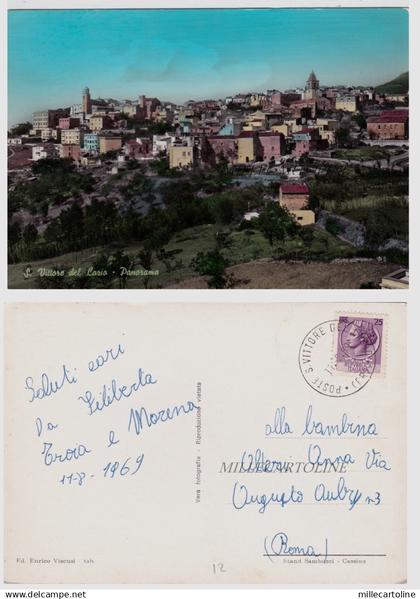 S. Vittore del Lazio - Panorama
POSTE S. VITTORE DEL
25
Saluti cari
Da Filiberta
Troia e Morena
11-8-1969
Vera fotografia - Riproduzione vietata
alla bambina
Anna Via
MILLECARTOLINE
Augusto Aubry n3
(Roma)
Ed. Enrico Viscusi - tab.
Stand Sambucci - Cassino
12
www.millecartoline.com